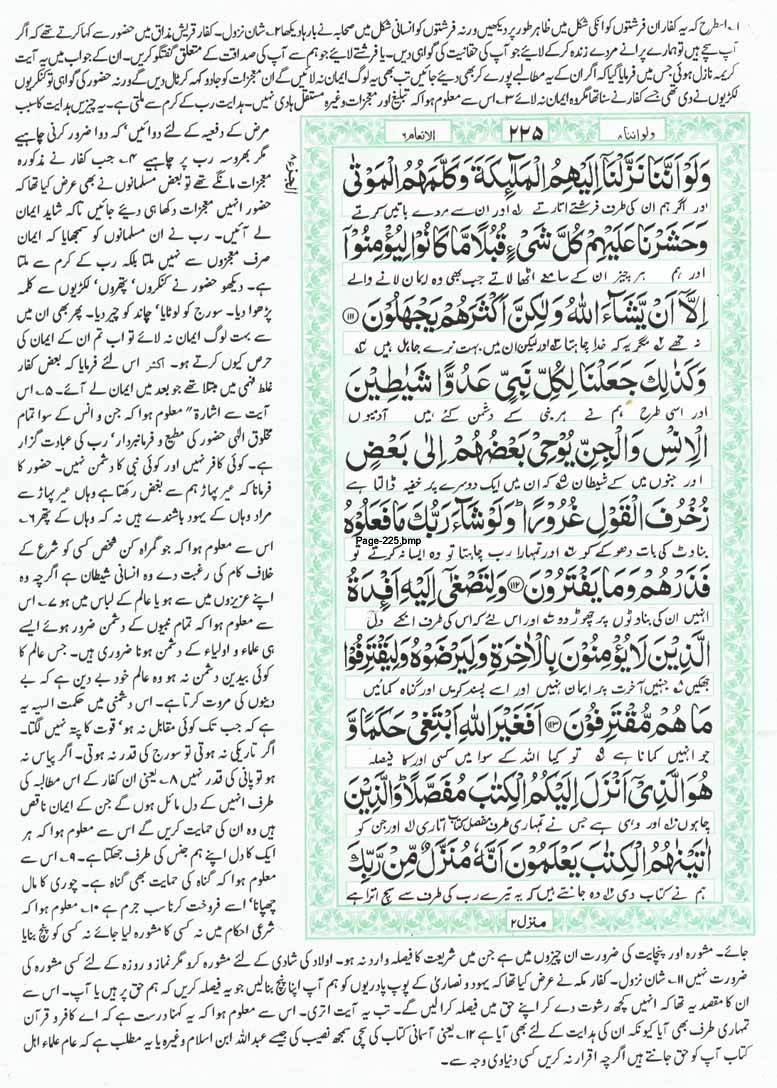 ۱۔ اسطرح کہ یہ کفار ان فرشتوں کو انکی شکل میں ظاہر طور پر دیکھیں ورنہ فرشتوں کو انسانی شکل میں صحابہ نے بارہا دیکھا ۲۔ شان نزول۔ کفار قریش مذاق میں حضور سے کہا کرتے تھے کہ اگر
آپ سچے ہیں تو ہمارے پرانے مردے زندہ کر کے لائیے جو آپ کی حقانیت کی گواہی دیں۔ یا فرشتے لائیے جو ہم سے آپ کی صداقت کے متعلق گفتگو کریں۔ ان کے جواب میں یہ آیت
کریمہ نازل ہوئی جس میں فرمایا گیا کہ اگر ان کے یہ مطالبے پورے کر بھی دیئے جائیں تب بھی یہ لوگ ایمان نہ لائیں گے ان معجزات کو جادو کہہ کر ٹال دیں گے ورنہ حضور کی گواہی تو کنکریوں
لکڑیوں نے دی تھی جسے کفار نے سنا تھا مگر وہ ایمان نہ لائے ۳۔ اس سے معلوم ہوا کہ تبلیغ اور معجزات وغیرہ مستقل ہادی نہیں۔ ہدایت رب کے کرم سے ملتی ہے۔ یہ چیزیں ہدایت کا سبب
ولواننا ۸
۲۲۵
الانعام ۶
وَلَوْ اَنَّنَا نَزَّلْنَاۤ اِلَيْهِمُ الْمَلٰٓئِكَةَ وَكَلَّمَهُمُ الْمَوْتٰى
اور اگر ہم ان کی طرف فرشتے اتارتے اور ان سے مردے باتیں کرتے
وَحَشَرْنَا عَلَيْهِمْ كُلَّ شَيْءٍ قُبُلًا مَّا كَانُوْا لِيُؤْمِنُوْۤا
اور ہم ہر چیز ان کے سامنے اٹھا لاتے جب بھی وہ ایمان لانے والے
اِلَّاۤ اَنْ يَّشَآءَ اللّٰهُ وَلٰكِنَّ اَكْثَرَهُمْ يَجْهَلُوْنَ ۱۱۱
نہ تھے مگر یہ کہ خدا چاہتا اور لیکن ان میں بہت نرے جاہل ہیں
وَكَذٰلِكَ جَعَلْنَا لِكُلِّ نَبِيٍّ عَدُوًّا شَيٰطِيْنَ
اور اسی طرح ہم نے ہر نبی کے دشمن کئے ہیں آدمیوں
الْاِنْسِ وَالْجِنِّ يُوْحِيْ بَعْضُهُمْ اِلٰى بَعْضٍ
اور جنوں میں کے شیطان کہ ان میں ایک دوسرے پر خفیہ ڈالتا ہے
زُخْرُفَ الْقَوْلِ غُرُوْرًا ؕ وَلَوْ شَآءَ رَبُّكَ مَا فَعَلُوْهُ
Page-225.bmp
بناوٹ کی بات دھوکے کو اور تمہارا رب چاہتا تو وہ ایسا نہ کرتے تو
فَذَرْهُمْ وَمَا يَفْتَرُوْنَ ۱۱۲ وَلِتَصْغٰۤى اِلَيْهِ اَفْـِٕدَةُ
انہیں ان کی بناوٹوں پر چھوڑ دو اور اس لئے کہ اس کی طرف انکے دل
الَّذِيْنَ لَا يُؤْمِنُوْنَ بِالْاٰخِرَةِ وَلِيَرْضَوْهُ وَلِيَقْتَرِفُوْا
جھکیں جنہیں آخرت پر ایمان نہیں اور اسے پسند کریں اور گناہ کمائیں
مَا هُمْ مُّقْتَرِفُوْنَ ۱۱۳ اَفَغَيْرَ اللّٰهِ اَبْتَغِيْ حَكَمًا وَّ
جو انہیں کمانا ہے تو کیا اللہ کے سوا میں کسی اور کا فیصلہ
هُوَ الَّذِيْۤ اَنْزَلَ اِلَيْكُمُ الْكِتٰبَ مُفَصَّلًا ؕ وَالَّذِيْنَ
چاہوں اور وہی ہے جس نے تمہاری طرف مفصل کتاب اتاری اور جن کو
اٰتَيْنٰهُمُ الْكِتٰبَ يَعْلَمُوْنَ اَنَّهٗ مُنَزَّلٌ مِّنْ رَّبِّكَ
ہم نے کتاب دی وہ جانتے ہیں کہ یہ تیرے رب کی طرف سے سچ اترا ہے
منزل ۲
مرض کے دفعیہ کے لئے دوائیں' کہ دوا ضرور کرنی چاہیے
مگر بھروسہ رب پر چاہیے ۴۔ جب کفار نے مذکورہ
معجزات مانگے تھے تو بعض مسلمانوں نے بھی عرض کیا تھا کہ
حضور انہیں معجزات دکھا ہی دیئے جائیں تاکہ شاید ایمان
لے آئیں۔ رب نے ان مسلمانوں کو سمجھایا کہ ایمان
صرف معجزوں سے نہیں ملتا بلکہ رب کے کرم سے ملتا
ہے۔ دیکھو حضور نے کنکروں' پتھروں' لکڑیوں سے کلمہ
پڑھوا دیا۔ سورج کو لوٹایا' چاند کو چیر دیا۔ پھر بھی ان میں
سے بہت لوگ ایمان نہ لائے تو اب تم ان کے ایمان کی
حرص کیوں کرتے ہو۔ اکثر اس لئے فرمایا کہ بعض کفار
غلط فہمی میں مبتلا تھے جو بعد میں ایمان لے آئے۔ ۵۔ اس
آیت سے اشارۃ" معلوم ہوا کہ جن و انس کے سوا تمام
مخلوق الٰہی حضور کی مطیع و فرمانبردار' رب کی عبادت گزار
ہے۔ کوئی کافر نہیں اور کوئی نبی کا دشمن نہیں۔ حضور کا
فرمانا کہ عیر پہاڑ ہم سے بغض رکھتا ہے وہاں عیر پہاڑ سے
مراد وہاں کے یہود باشندے ہیں نہ کہ وہاں کے پتھر ۶۔
اس سے معلوم ہوا کہ جو گمراہ کن شخص کسی کو شرع کے
خلاف کام کی رغبت دے وہ انسانی شیطان ہے اگرچہ وہ
اپنے عزیزوں میں سے ہو یا عالم کے لباس میں ہو ۷۔ اس
سے معلوم ہوا کہ تمام نبیوں کے دشمن ضرور ہوئے ایسے
ہی علماء و اولیاء کے دشمن ہونا ضروری ہیں۔ جس عالم کا
کوئی بیدین دشمن نہ ہو وہ عالم خود بے دین ہے کہ بے
دینوں کی مروت کرتا ہے۔ اس دشمنی میں حکمت الٰہیہ یہ
ہے کہ جب تک کوئی مقابل نہ ہو' قوت کا پتہ نہیں لگتا۔
اگر تاریکی نہ ہوتی تو سورج کی قدر نہ ہوتی۔ اگر پیاس نہ
ہو تو پانی کی قدر نہیں ۸۔ یعنی ان کفار کے اس مطالبہ کی
طرف انہیں کے دل مائل ہوں گے جن کے ایمان ناقص
ہیں وہ ان کی حمایت کریں گے اس سے معلوم ہوا کہ ہر
ایک کا دل اپنے ہم جنس کی طرف جھکتا ہے۔ ۹۔ اس سے
معلوم ہوا کہ گناہ کی حمایت بھی گناہ ہے۔ چوری کا مال
چھپانا' اسے فروخت کرنا سب جرم ہے ۱۰۔ معلوم ہوا کہ
شرعی احکام میں نہ کسی کا مشورہ لیا جائے نہ کسی کو پنچ بنایا
جائے۔ مشورہ اور پنچایت کی ضرورت ان چیزوں میں ہے جن میں شریعت کا فیصلہ وارد نہ ہو۔ اولاد کی شادی کے لئے مشورہ کرو مگر نماز و روزہ کے لئے کسی مشورہ کی
ضرورت نہیں ۱۱۔ شان نزول۔ کفار مکہ نے عرض کیا تھا کہ یہود و نصاریٰ کے پوپ پادریوں کو ہم آپ اپنا پنچ بنالیں جو یہ فیصلہ کریں کہ ہم حق پر ہیں یا آپ۔ اس سے
ان کا مقصد یہ تھا کہ انہیں کچھ رشوت دے کر اپنے حق میں فیصلہ کرا لیں گے۔ تب یہ آیت اتری۔ اس سے معلوم ہوا کہ یہ کہنا درست ہے کہ اے کافرو قرآن
تمہاری طرف بھی آیا کیونکہ ان کی ہدایت کے لئے بھی آیا ہے ۱۲۔ یعنی آسمانی کتاب کی سچی سمجھ نصیب کی جیسے عبداللہ ابن اسلام وغیرہ یا یہ مطلب ہے کہ عام علماء اہل
کتاب آپ کو حق جانتے ہیں اگرچہ اقرار نہ کریں کسی دنیاوی وجہ سے۔